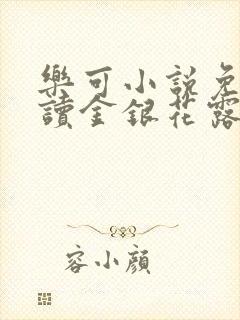 樂可小說免
讀金銀花露
容小顏